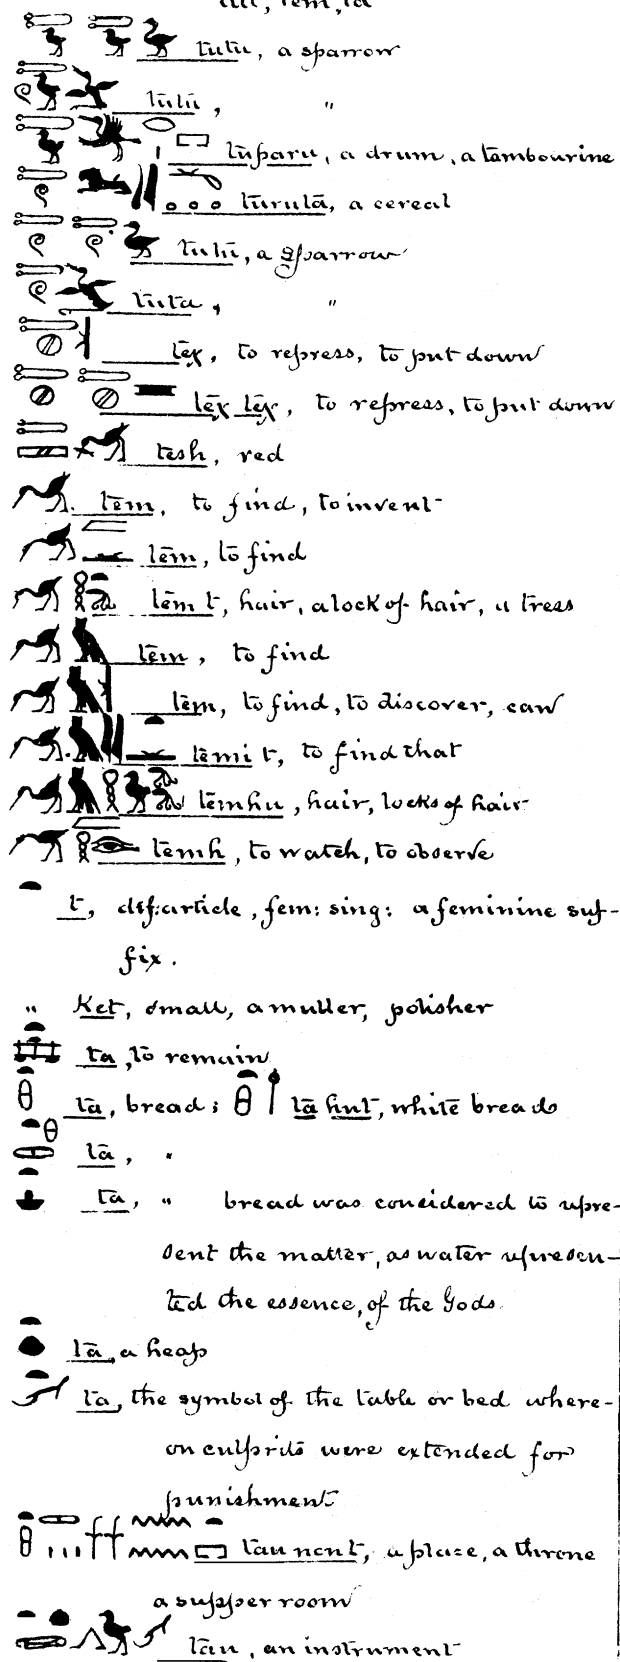 tutu, a sparrow
tutu, "
tuparu, a drum, a tambourine
turuta, a cereal
tutu, a sparrow
tuta, "
teχ, to repress, to put down
teχ teχ, to repress, to put down
tesh, red
tem, to find, to invent
tem, to find
tem t, hair, a lock of hair, a tress
tem, to find
tem, to find, to discover, caw
temi t, to find that
temhu, hair, locks of hair
temh, to watch, to observe
t, def: article, fem: sing: a feminine suf-
fix.
" Ket, small, a muller, polisher
ta, to remain
ta, bread; ta hut, white bread
ta, "
ta, " bread was considered to repre-
sent the matter, as water represen-
ted the essence, of the Gods.
ta, a heap
ta, the symbol of the table or bed where-
on culprits were extended for
punishment
tau nent, a place, a throne
a supper room
tau, an instrument